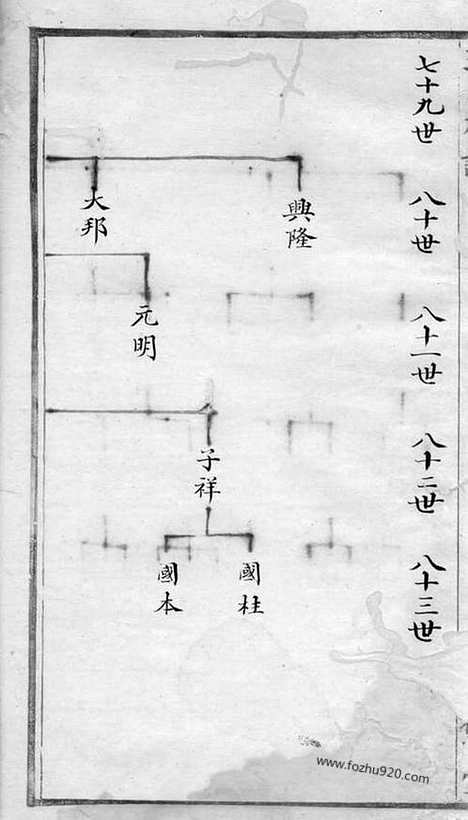 七十九世
八十世
八十一世
八十二世
八十三世
興隆
大邦
元明
子祥
國柱
國本
www.fozhu920.com